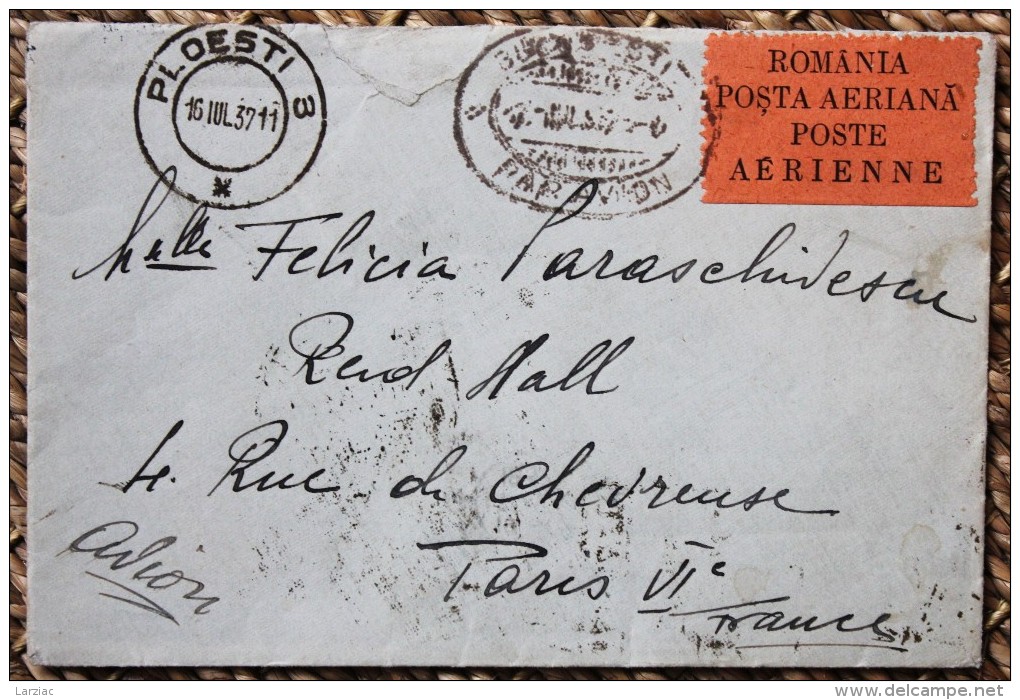 PLOESTI 3
16 IUL.37 11
PAR AVION
ROMÂNIA
POȘTA AERIANĂ
POSTE
AÉRIENNE
Mlle Felicia Paraschivescu
Reid Hall
4. Rue de Chevreuse
Paris VIe
France
Avion
Larziac
www.delcampe.net